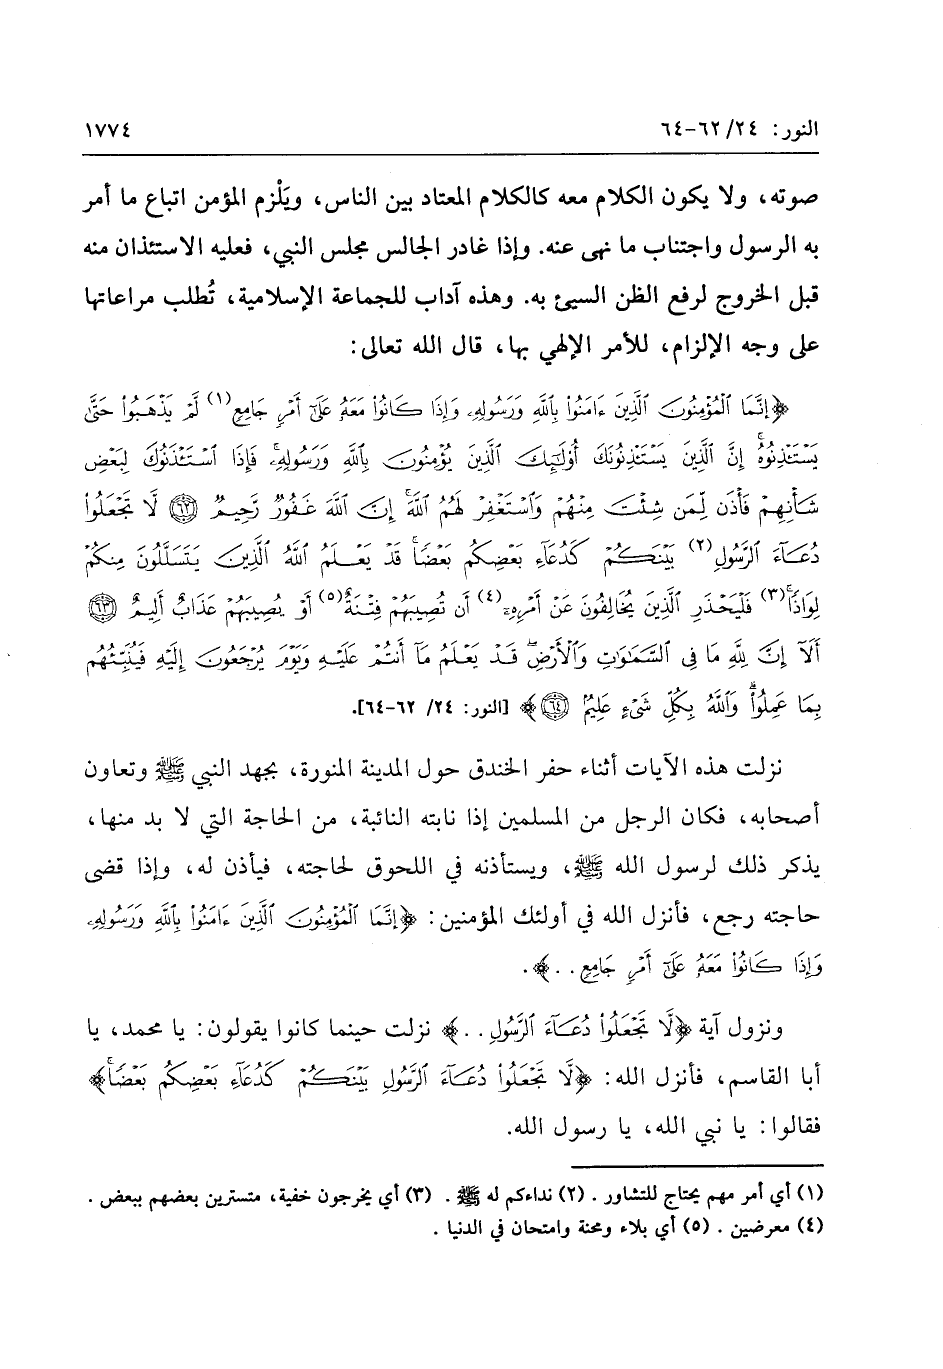 النور: ٢٤/ ٦٢-٦٤
١٧٧٤
صوته، ولا يكون الكلام معه كالكلام المعتاد بين الناس، ويَلْزم المؤمن اتباع ما أمر
به الرسول واجتناب ما نهى عنه. وإذا غادر الجالس مجلس النبي، فعليه الاستئذان منه
قبل الخروج لرفع الظن السيئ به. وهذه آداب للجماعة الإسلامية، تُطلب مراعاتها
على وجه الإلزام، للأمر الإلهي بها، قال الله تعالى:
﴿إِنَّمَا ٱلْمُؤْمِنُونَ ٱلَّذِينَ ءَامَنُوا۟ بِٱللَّهِ وَرَسُولِهِۦ وَإِذَا كَانُوا۟ مَعَهُۥ عَلَىٰٓ أَمْرٍ جَامِعٍ(١) لَّمْ يَذْهَبُوا۟ حَتَّىٰ
يَسْتَـْٔذِنُوهُ ۚ إِنَّ ٱلَّذِينَ يَسْتَـْٔذِنُونَكَ أُو۟لَٰٓئِكَ ٱلَّذِينَ يُؤْمِنُونَ بِٱللَّهِ وَرَسُولِهِۦ ۚ فَإِذَا ٱسْتَـْٔذَنُوكَ لِبَعْضِ
شَأْنِهِمْ فَأْذَن لِّمَن شِئْتَ مِنْهُمْ وَٱسْتَغْفِرْ لَهُمُ ٱللَّهَ ۚ إِنَّ ٱللَّهَ غَفُورٌ رَّحِيمٌ ٦٢ لَّا تَجْعَلُوا۟
دُعَآءَ ٱلرَّسُولِ(٢) بَيْنَكُمْ كَدُعَآءِ بَعْضِكُم بَعْضًا ۚ قَدْ يَعْلَمُ ٱللَّهُ ٱلَّذِينَ يَتَسَلَّلُونَ مِنكُمْ
لِوَاذًا ۚ(٣) فَلْيَحْذَرِ ٱلَّذِينَ يُخَالِفُونَ عَنْ أَمْرِهِۦٓ(٤) أَن تُصِيبَهُمْ فِتْنَةٌ(٥) أَوْ يُصِيبَهُمْ عَذَابٌ أَلِيمٌ ٦٣
أَلَآ إِنَّ لِلَّهِ مَا فِى ٱلسَّمَٰوَٰتِ وَٱلْأَرْضِ ۖ قَدْ يَعْلَمُ مَآ أَنتُمْ عَلَيْهِ وَيَوْمَ يُرْجَعُونَ إِلَيْهِ فَيُنَبِّئُهُم
بِمَا عَمِلُوا۟ ۗ وَٱللَّهُ بِكُلِّ شَىْءٍ عَلِيمٌۢ ٦٤﴾ [النور: ٢٤/ ٦٢-٦٤].
نزلت هذه الآيات أثناء حفر الخندق حول المدينة المنورة، بجهد النبي ﷺ وتعاون
أصحابه، فكان الرجل من المسلمين إذا نابته النائبة، من الحاجة التي لا بد منها،
يذكر ذلك لرسول الله ﷺ، ويستأذنه في اللحوق لحاجته، فيأذن له، وإذا قضى
حاجته رجع، فأنزل الله في أولئك المؤمنين: ﴿إِنَّمَا ٱلْمُؤْمِنُونَ ٱلَّذِينَ ءَامَنُوا۟ بِٱللَّهِ وَرَسُولِهِۦ
وَإِذَا كَانُوا۟ مَعَهُۥ عَلَىٰٓ أَمْرٍ جَامِعٍ..﴾.
ونزول آية ﴿لَّا تَجْعَلُوا۟ دُعَآءَ ٱلرَّسُولِ..﴾ نزلت حينما كانوا يقولون: يا محمد، يا
أبا القاسم، فأنزل الله: ﴿لَّا تَجْعَلُوا۟ دُعَآءَ ٱلرَّسُولِ بَيْنَكُمْ كَدُعَآءِ بَعْضِكُم بَعْضًا ۚ﴾
فقالوا: يا نبي الله، يا رسول الله.
(١) أي أمر مهم يحتاج للتشاور. (٢) نداءكم له ﷺ. (٣) أي يخرجون خفية، متسترين بعضهم ببعض.
(٤) معرضين. (٥) أي بلاء ومحنة وامتحان في الدنيا.